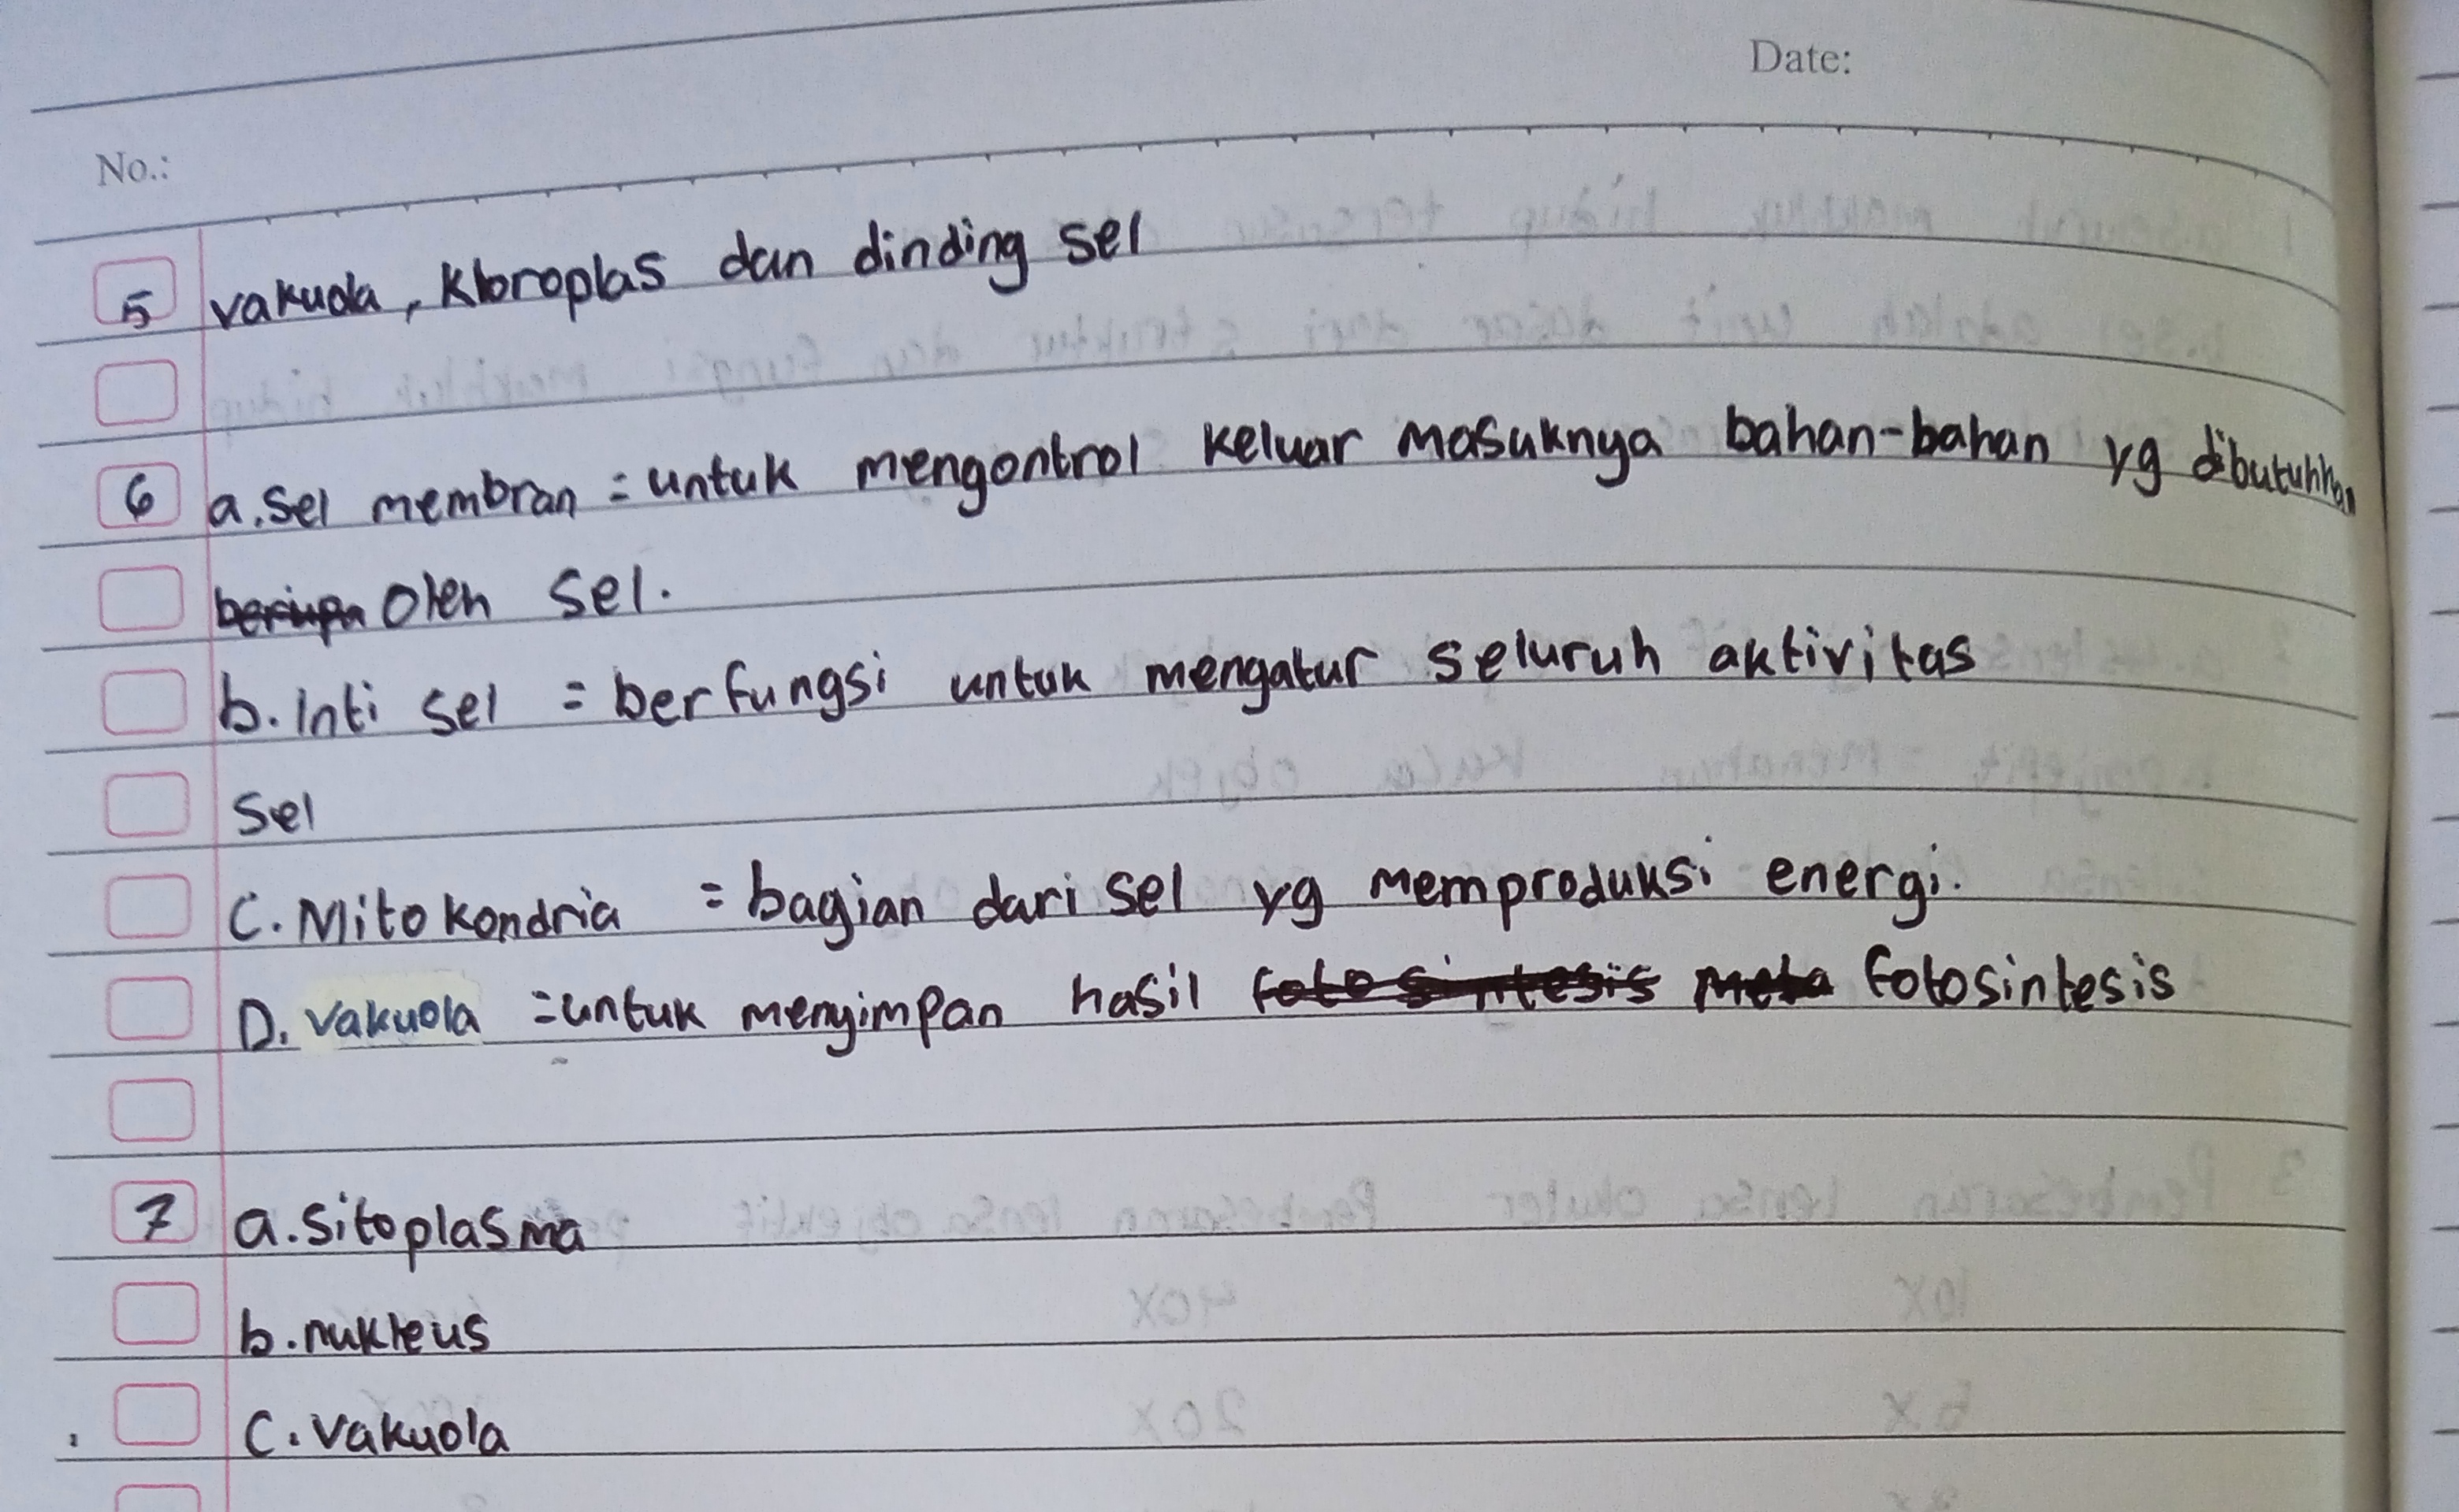 Date:
No.:
5 vakuola, Kloroplas dan dinding sel
6 a. Sel membran = untuk mengontrol keluar masuknya bahan-bahan yg dibutuhkan
berupa Oleh sel.
b. Inti sel = berfungsi untuk mengatur seluruh aktivitas
Sel
C. Mitokondria = bagian dari sel yg memproduksi energi.
D. Vakuola = untuk menyimpan hasil fotosintesis meta fotosintesis
7 a. Sitoplasma
b. nukleus
C. Vakuola